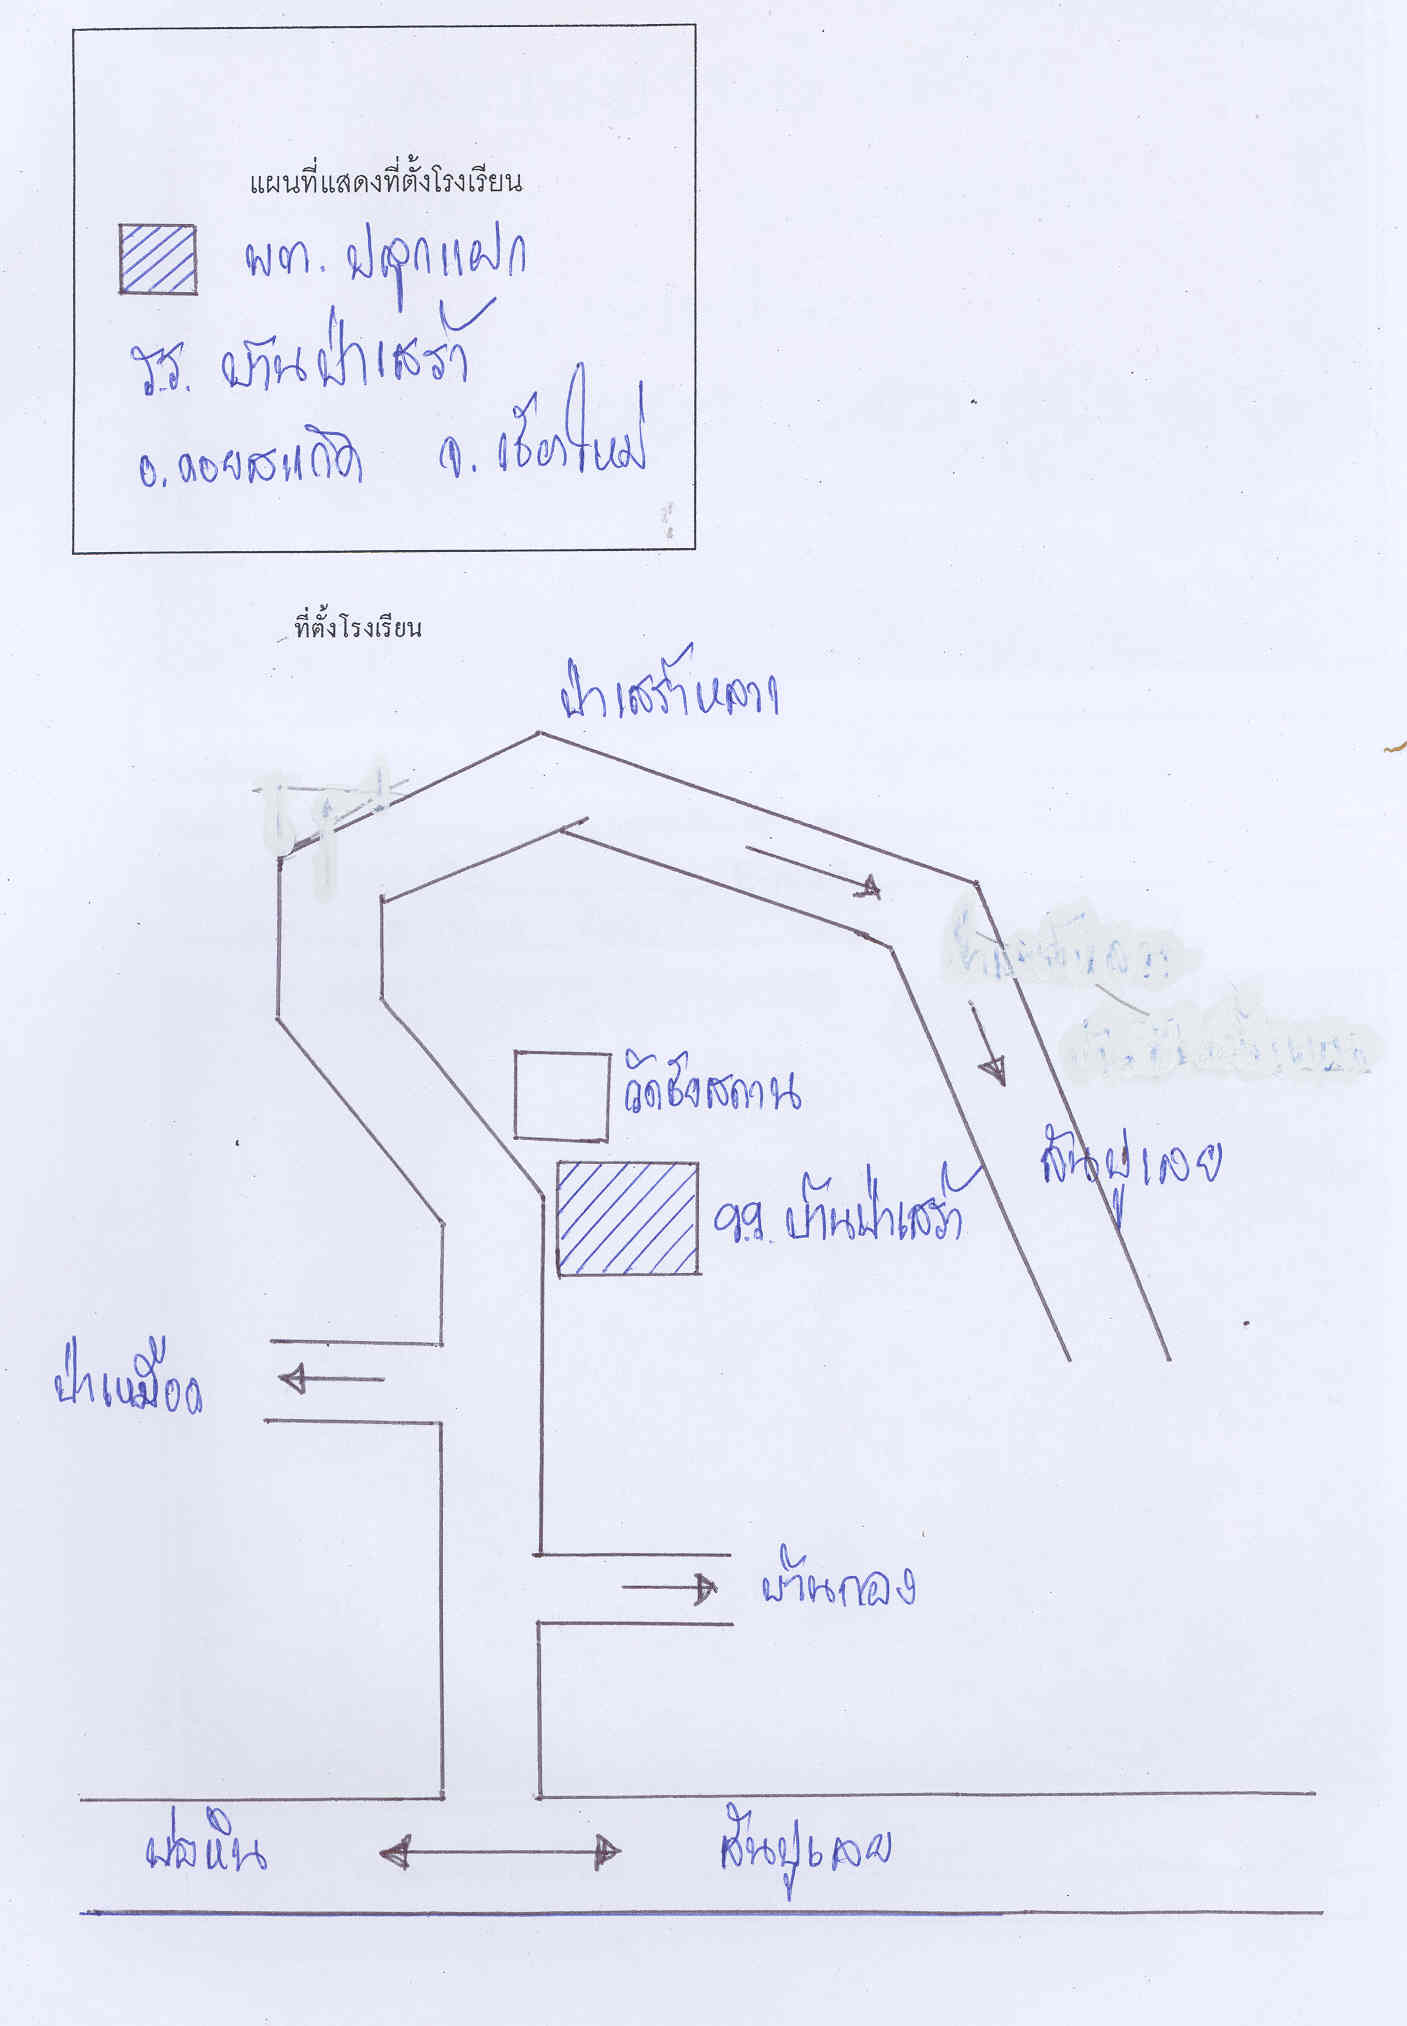 แผนที่แสดงที่ตั้งโรงเรียน
พท. ปลูกแฝก
ร.ร. บ้านป่าเสร้า
อ.ดอยสะเก็ด จ. เชียงใหม่
ที่ตั้งโรงเรียน
ป่าเสร้าหลวง
วัดชัยสถาน
ร.ร. บ้านป่าเสร้า
สันปูเลย
ป่าเหมือด
บ้านกอง
บ่อหิน
สันปูเลย